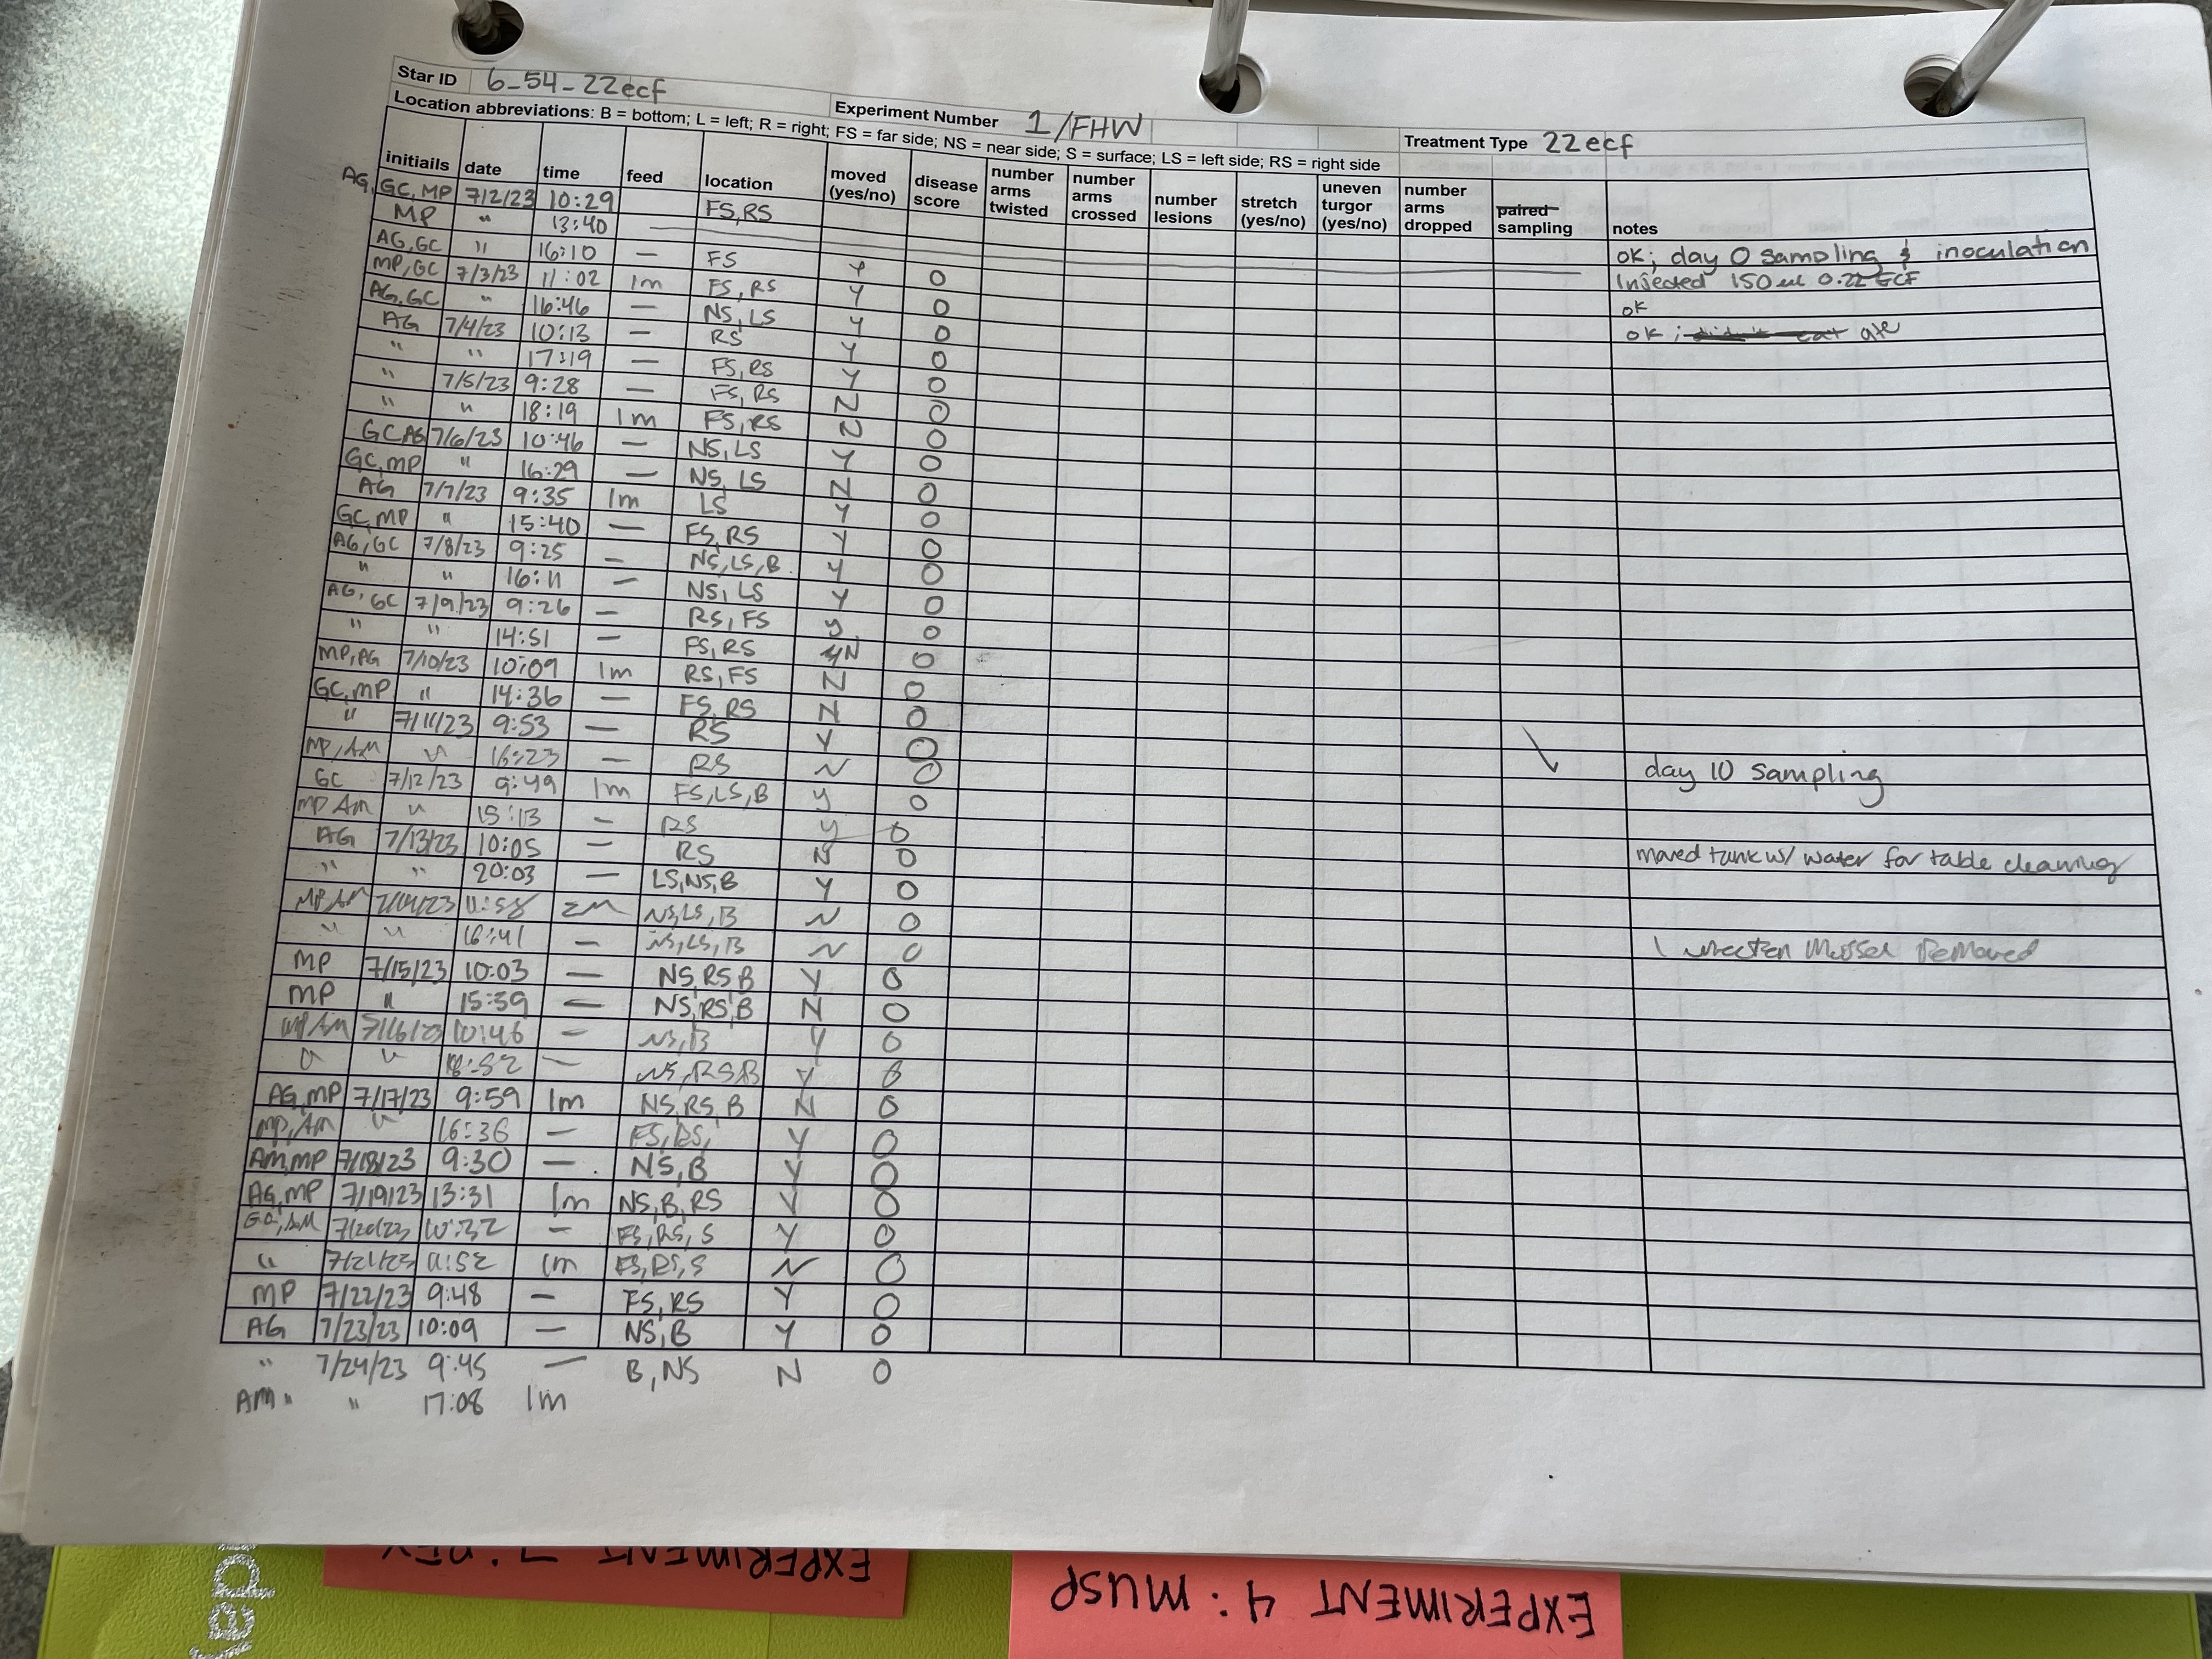 Star ID 6_54_22ecf Experiment Number 1/FHW Treatment Type 22ecf
Location abbreviations: B = bottom; L = left; R = right; FS = far side; NS = near side; S = surface; LS = left side; RS = right side
initiails date time feed location moved (yes/no) disease score number arms twisted number arms crossed number lesions stretch (yes/no) uneven turgor (yes/no) number arms dropped paired sampling notes
AG, GC, MP 7/2/23 10:29 FS,RS ok; day 0 sampling & inoculation
MP " 13:40 — Injected 150 ul 0.22 ECF
AG,GC " 16:10 — FS Y 0 ok
MP,GC 7/3/23 11:02 1m FS,RS Y 0 ok; ate
AG,GC " 16:46 — NS,LS Y 0
AG 7/4/23 10:13 — RS Y 0
" " 17:19 — FS,RS Y 0
" 7/5/23 9:28 — FS,RS N 0
" " 18:19 1m FS,RS N 0
GC AG 7/6/23 10:46 — NS,LS Y 0
GC,MP " 16:29 — NS,LS N 0
AG 7/7/23 9:35 1m LS Y 0
GC,MP " 15:40 — FS,RS Y 0
AG,GC 7/8/23 9:25 — NS,LS,B Y 0
" " 16:11 — NS,LS Y 0
AG,GC 7/9/23 9:26 — RS,FS Y 0
" " 14:51 — FS,RS N 0
MP,AG 7/10/23 10:09 1m RS,FS N 0
GC,MP " 14:36 — FS,RS N 0
" 7/11/23 9:53 — RS Y 0
MP,AM " 16:23 — RS N 0 day 10 sampling
GC 7/12/23 9:49 1m FS,LS,B Y 0
MP AM " 15:13 — RS Y 0
AG 7/13/23 10:05 — RS N 0 moved tank w/ water for table cleaning
" " 20:03 — LS,NS,B Y 0
MP,AM 7/14/23 11:58 2M NS,LS,B N 0
" " 16:41 — NS,LS,B N 0 1 Mussel Removed
MP 7/15/23 10:03 — NS,RS,B Y 0
MP " 15:59 — NS,RS,B N 0
MP,AM 7/16/23 10:46 — NS,B Y 0
" " — NS,RS,B Y 0
AG,MP 7/17/23 9:59 1m NS,RS,B N 0
MP,AM " 16:36 — FS,RS, Y 0
AM,MP 7/18/23 9:30 — NS,B Y 0
AG,MP 7/19/23 13:31 1m NS,B,RS Y 0
GC,AM 7/20/23 10:32 — FS,RS,S Y 0
" 7/21/23 11:52 1m FS,RS,S N 0
MP 7/22/23 9:48 — FS,RS Y 0
AG 7/23/23 10:09 — NS,B Y 0
" 7/24/23 9:45 — B,NS N 0
AM " " 17:08 1m
EXPERIMENT 4: MUSP